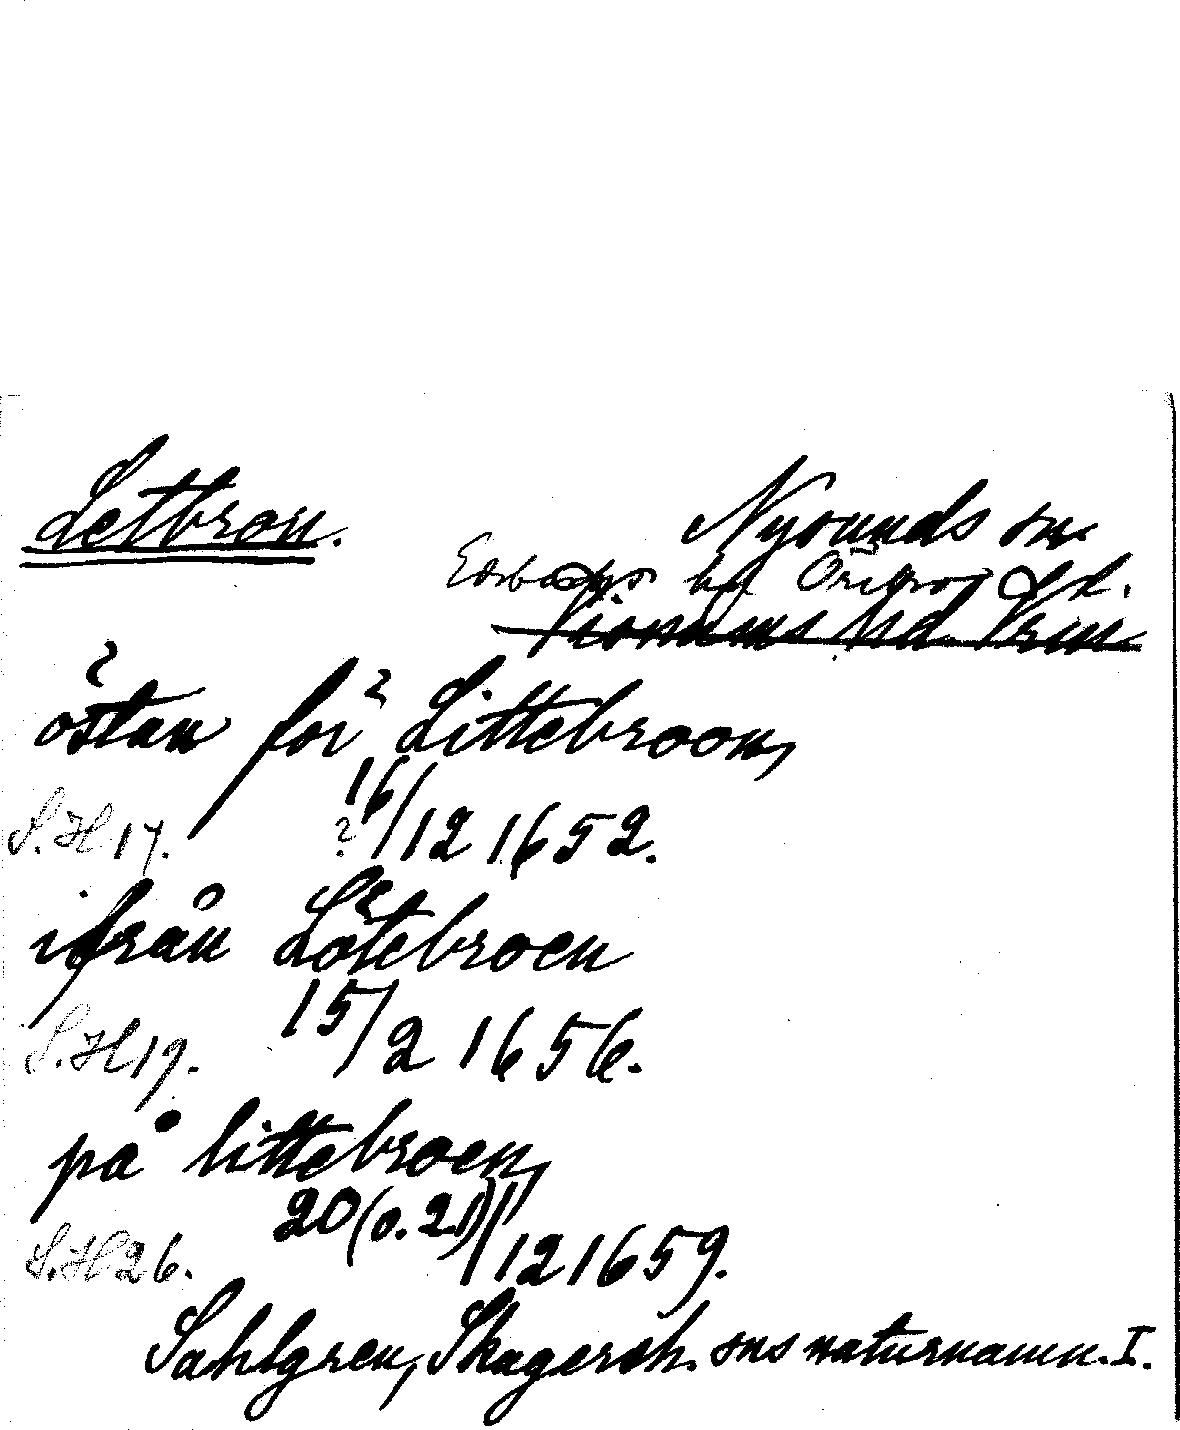 Letbron.
Nysunds sn
Edsbergs hd Örebro l.
Visnums hd Vrm
östan för Littebroon,
S.H 17. 16/12 1652.
ifrån Lötebroen
S.H 19. 15/2 1656.
på littebroen,
S.H 26. 20 (o. 21)/12 1659.
Sahlgren, Skagersh. sns naturnamn. I.